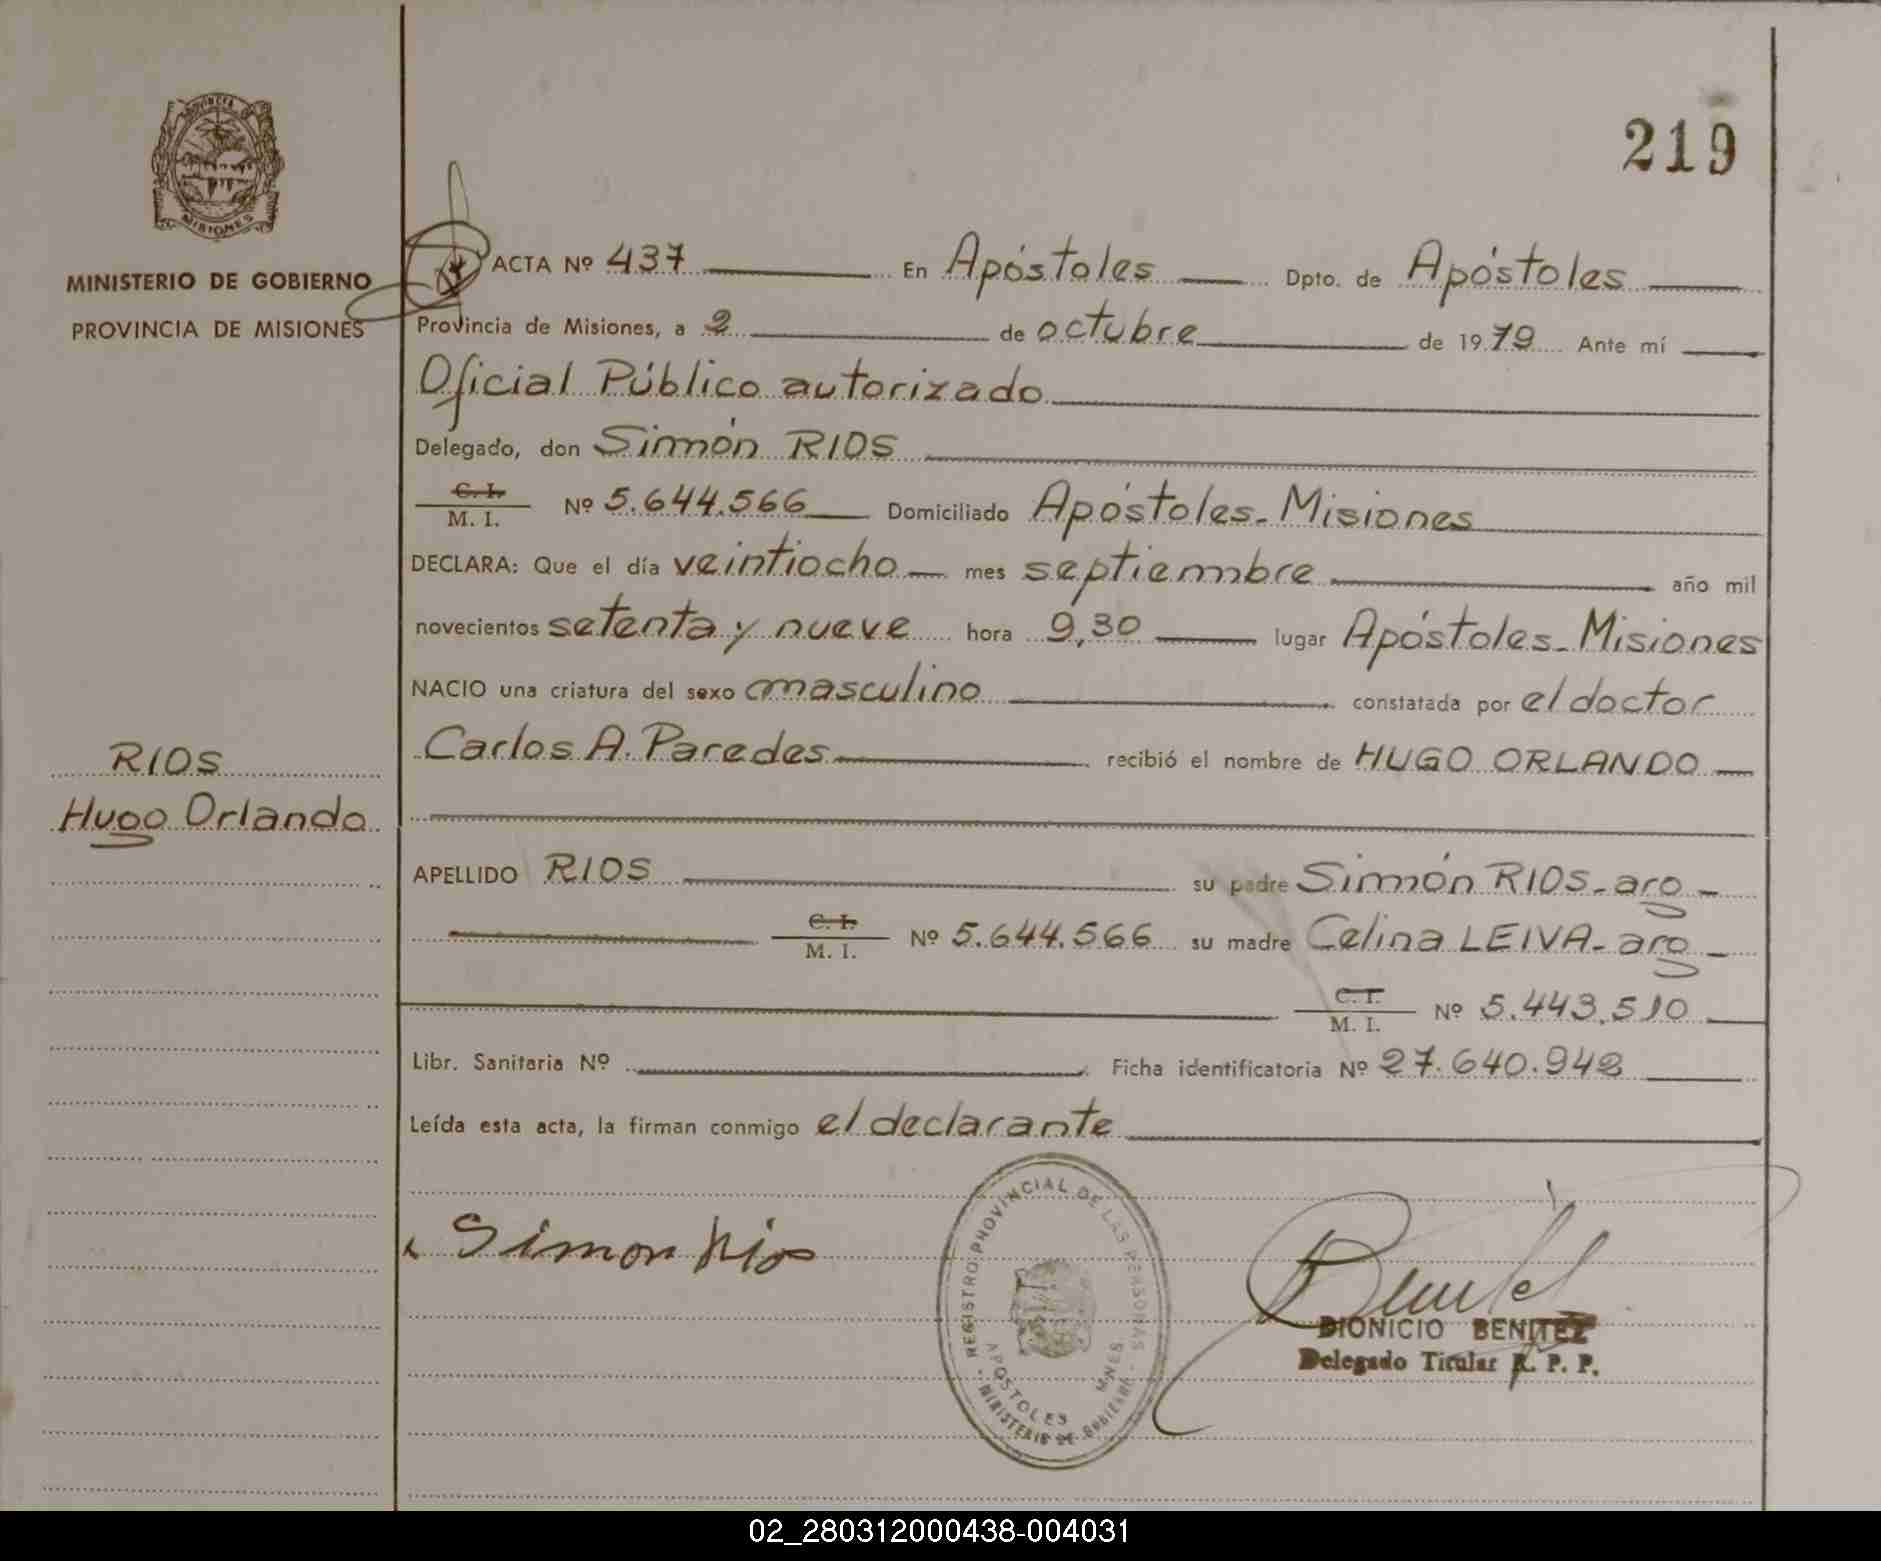 219
PROVINCIA DE
MISIONES
MINISTERIO DE GOBIERNO
PROVINCIA DE MISIONES
RIOS
Hugo Orlando
ACTA Nº 437 En Apóstoles Dpto. de Apóstoles
Provincia de Misiones, a 2 de octubre de 1979 Ante mí
Oficial Público autorizado
Delegado, don Simón RIOS
C. I.
M. I. Nº 5.644.566 Domiciliado Apóstoles-Misiones
DECLARA: Que el día veintiocho mes septiembre año mil
novecientos setenta y nueve hora 9,30 lugar Apóstoles-Misiones
NACIO una criatura del sexo masculino constatada por el doctor
Carlos A. Paredes recibió el nombre de HUGO ORLANDO
APELLIDO RIOS su padre Simón RIOS-arg-
C. I.
M. I. Nº 5.644.566 su madre Celina LEIVA-arg-
C. I.
M. I. Nº 5.443.510
Libr. Sanitaria Nº Ficha identificatoria Nº 27.640.942
Leída esta acta, la firman conmigo el declarante
Simon Rios
REGISTRO PROVINCIAL DE LAS PERSONAS
APOSTOLES MNES
MINISTERIO DE GOBIERNO
Benitez
DIONICIO BENITEZ
Delegado Titular R. P. P.
02_280312000438-004031